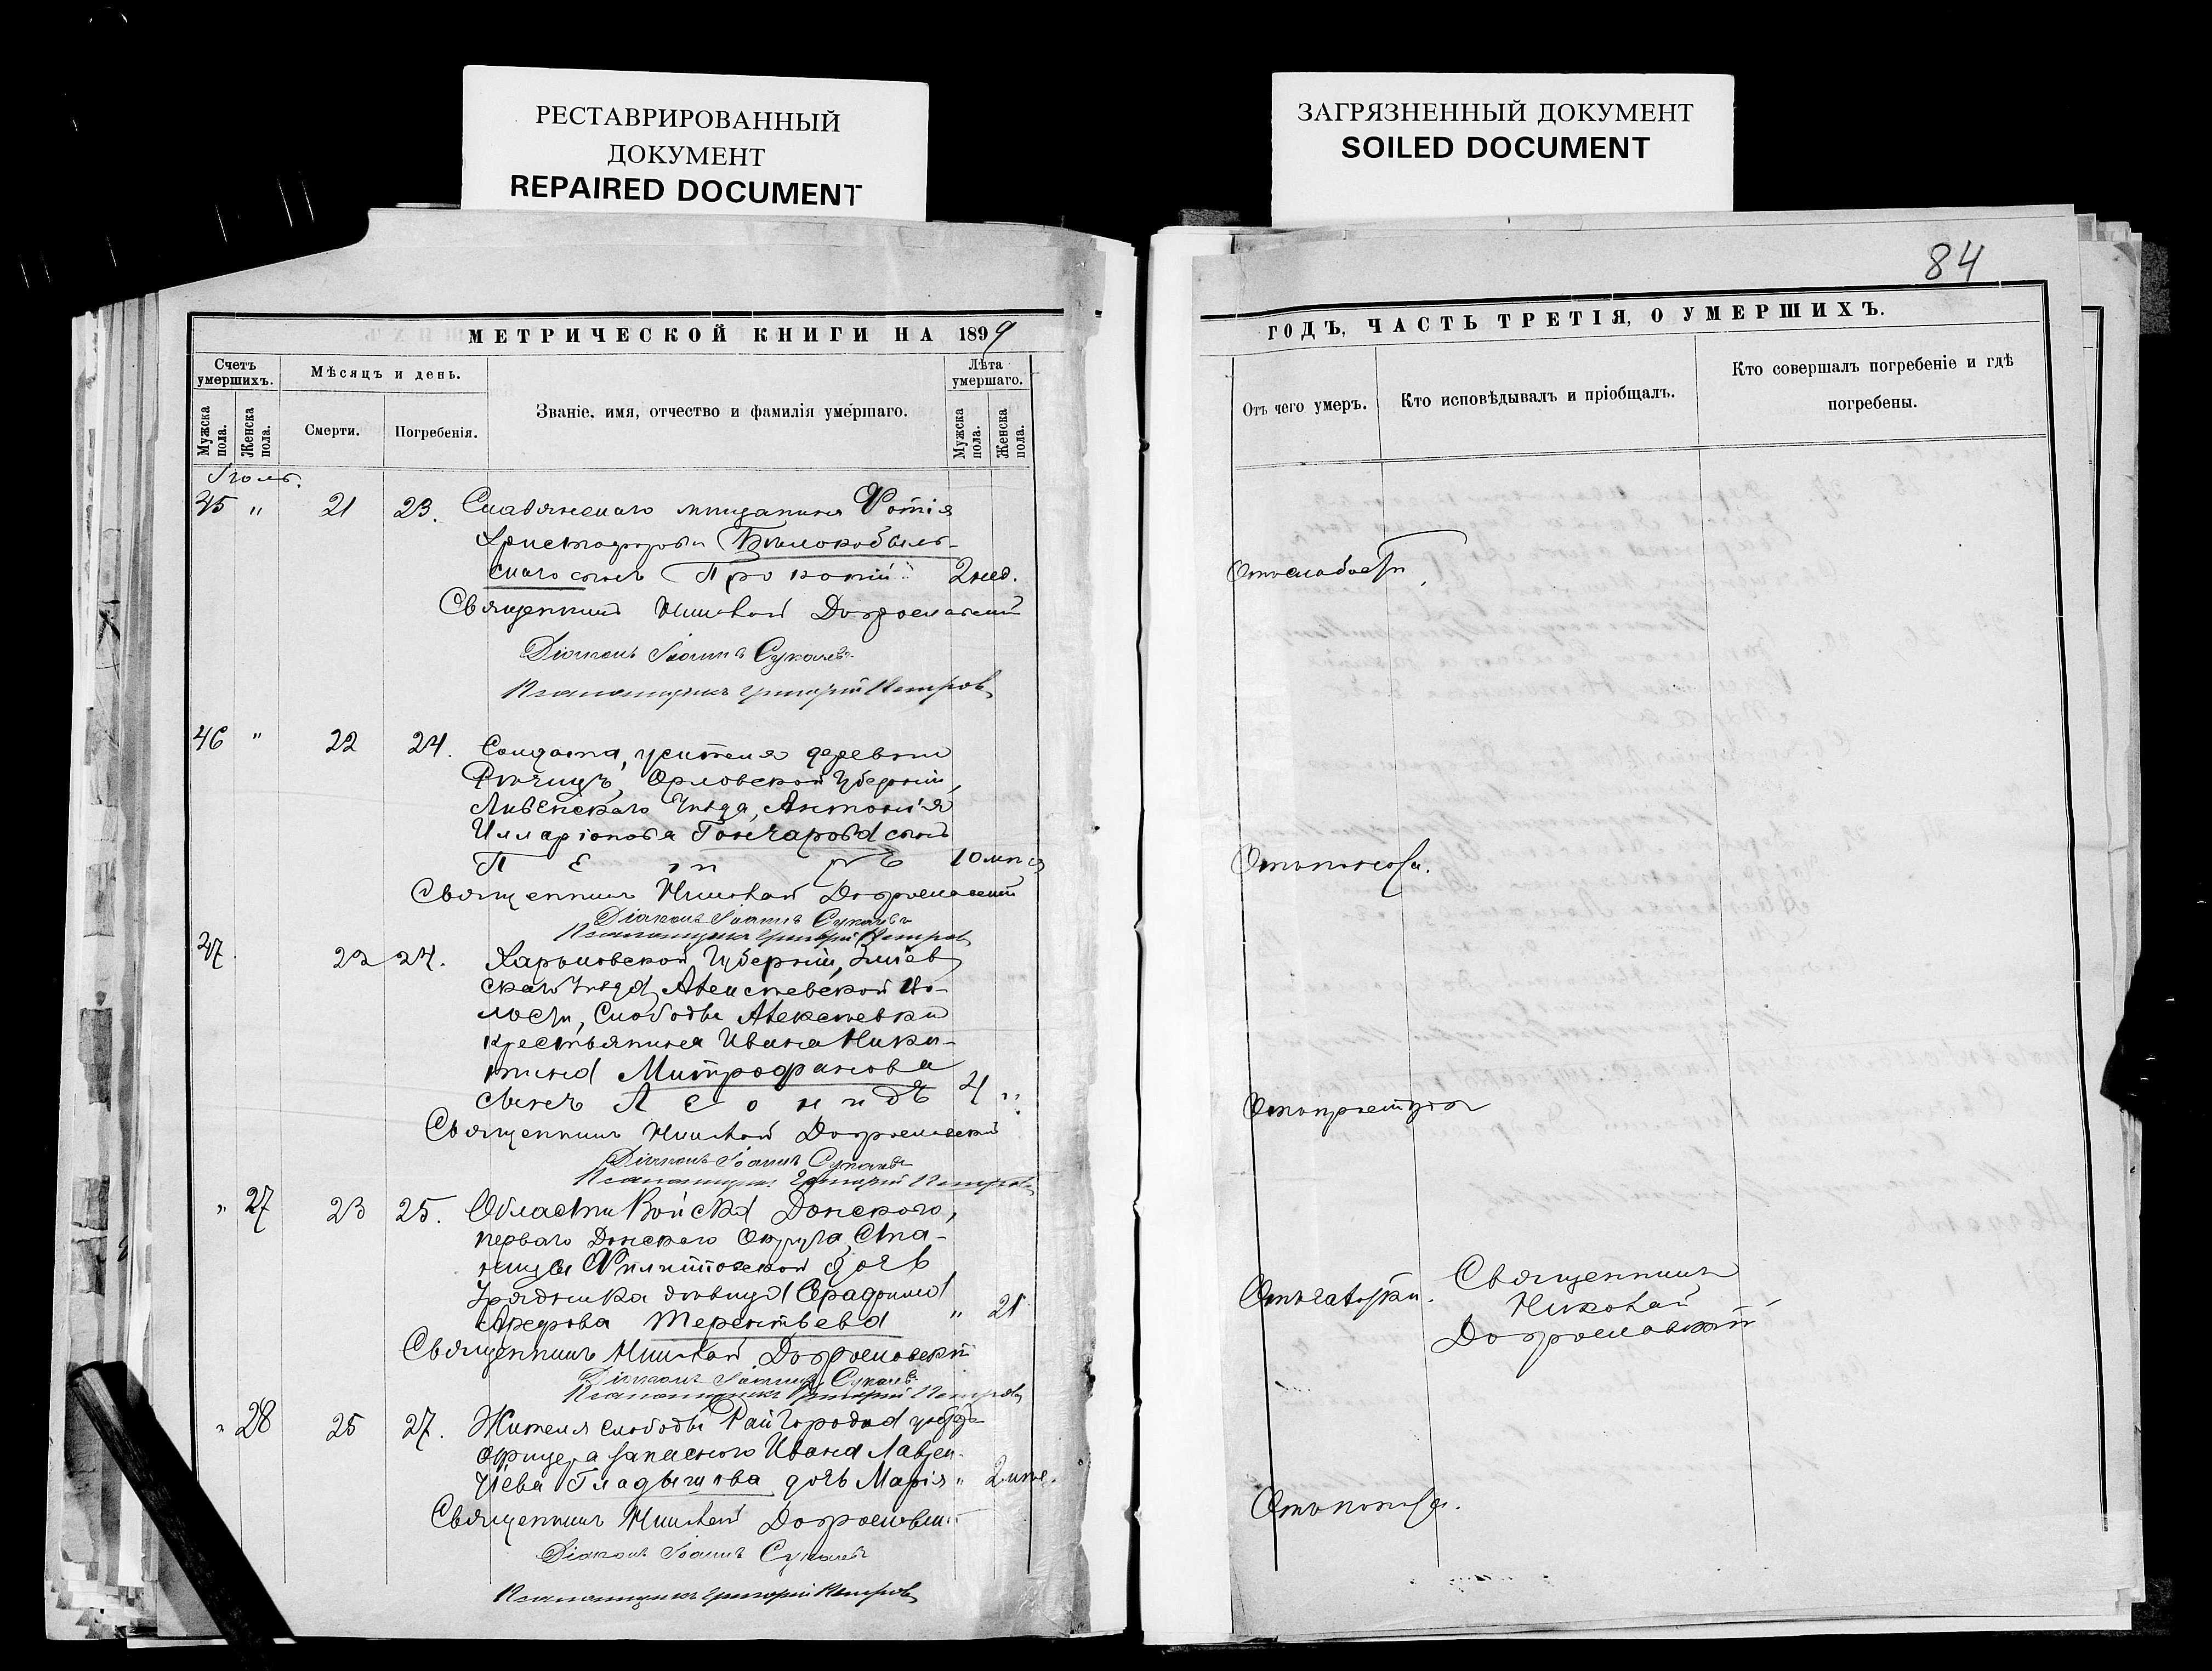 РЕСТАВРИРОВАННЫЙ
ДОКУМЕНТ
REPAIRED DOCUMENT
ЗАГРЯЗНЕННЫЙ ДОКУМЕНТ
SOILED DOCUMENT
84
МЕТРИЧЕСКОЙ КНИГИ НА 1899
ГОДЪ, ЧАСТЬ ТРЕТІЯ, О УМЕРШИХЪ.
Счетъ умершихъ.
Мѣсяцъ и день.
Званіе, имя, отчество и фамилія умершаго.
Лѣта умершаго.
Мужска пола.
Женска пола.
Смерти.
Погребенія.
Мужска пола.
Женска пола.
Отъ чего умеръ.
Кто исповѣдывалъ и пріобщалъ.
Кто совершалъ погребеніе и гдѣ
погребены.
Іюль.
45 " 21 23. Славянскаго мѣщанина Фотія
Христофорова Бѣлокобыль-
скаго сынъ Прокопій 2 нед.
Отъ слабости
Священникъ Николай Доброславскій
Діаконъ Іоаннъ Сукачевъ
Псаломщикъ Григорій Петровъ
46 " 22 24. Солдата, жителя деревни
Орловской Губерніи,
Ливенскаго Уѣзда, Антонія
Илларіонова Гончарова сынъ
Петръ 10 мѣся
Отъ поноса.
Священникъ Николай Доброславскій
Діаконъ Іоаннъ Сукачевъ
Псаломщикъ Григорій Петровъ
47. 22 24. Харьковской Губерніи, Зміев
скаго Уѣзда, Алексѣевской Во-
лости, Слободы Алексѣевки
крестьянина Ивана Ники-
тина Митрофанова
сынъ Леонидъ 4 "
Отъ простуды
Священникъ Николай Доброславскій
Діаконъ Іоаннъ Сукачевъ
Псаломщикъ Григорій Петровъ
" 27 23 25. Области Войска Донскаго,
перваго Донскаго Округа, Ста-
ницы Филипповской дочь
Урядника дѣвица
Арефова Терентьева " 21
Отъ чахотки.
Священникъ
Николай
Доброславскій
Священникъ Николай Доброславскій
Діаконъ Іоаннъ Сукачевъ
Псаломщикъ Григорій Петровъ
" 28 25 27. Жителя слободы Райгородка унтеръ
офицера запаснаго Ивана Лаврен-
тіева Гладышева дочь Марія " 2 мѣс.
Отъ поноса.
Священникъ Николай Доброславскій
Діаконъ Іоаннъ Сукачевъ
Псаломщикъ Григорій Петровъ